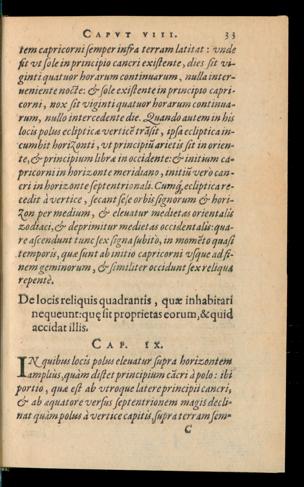 CAPVT VIII. 33
tem capricorni semper infra terram latitat: vnde
fit vt sole in principio cancri existente, dies sit vi-
ginti quatuor horarum continuarum, nulla inter-
ueniente nocte: & sole existente in principio capri-
corni, nox sit viginti quatuor horarum continua-
rum, nullo intercedente die. Quando autem in his
locis polus ecliptica verticē trāsit, ipsa ecliptica in-
cumbit horizonti, vt principiū arietis sit in orien-
te, & principium libra in occidente: & initium ca-
pricorni in horizonte meridiano, initiū vero can-
cri in horizonte septentrionali. Cumq; ecliptica re-
cedit à vertice, secant sese orbis signorum & hori-
zon per medium, & eleuatur medietas orientalis
zodiaci, & deprimitur medietas occidentalis: qua-
re ascendunt tunc sex signa subito, in momēto quasi
temporis, qua sunt ab initio capricorni vsque ad fi-
nem geminorum, & similiter occidunt sex reliqua
repentè.
De locis reliquis quadrantis, quæ inhabitari
nequeunt: quę sit proprietas eorum, & quid
accidat illis.
CAP. IX.
IN quibus locis polus eleuatur supra horizontem
amplius, quàm distet principium cācri à polo: ibi
portio, quæ est ab vtroque latere principii cancri,
& ab aquatore versus septentrionem magis decli-
nat quàm polus à vertice capitis, supra terram sem-
C